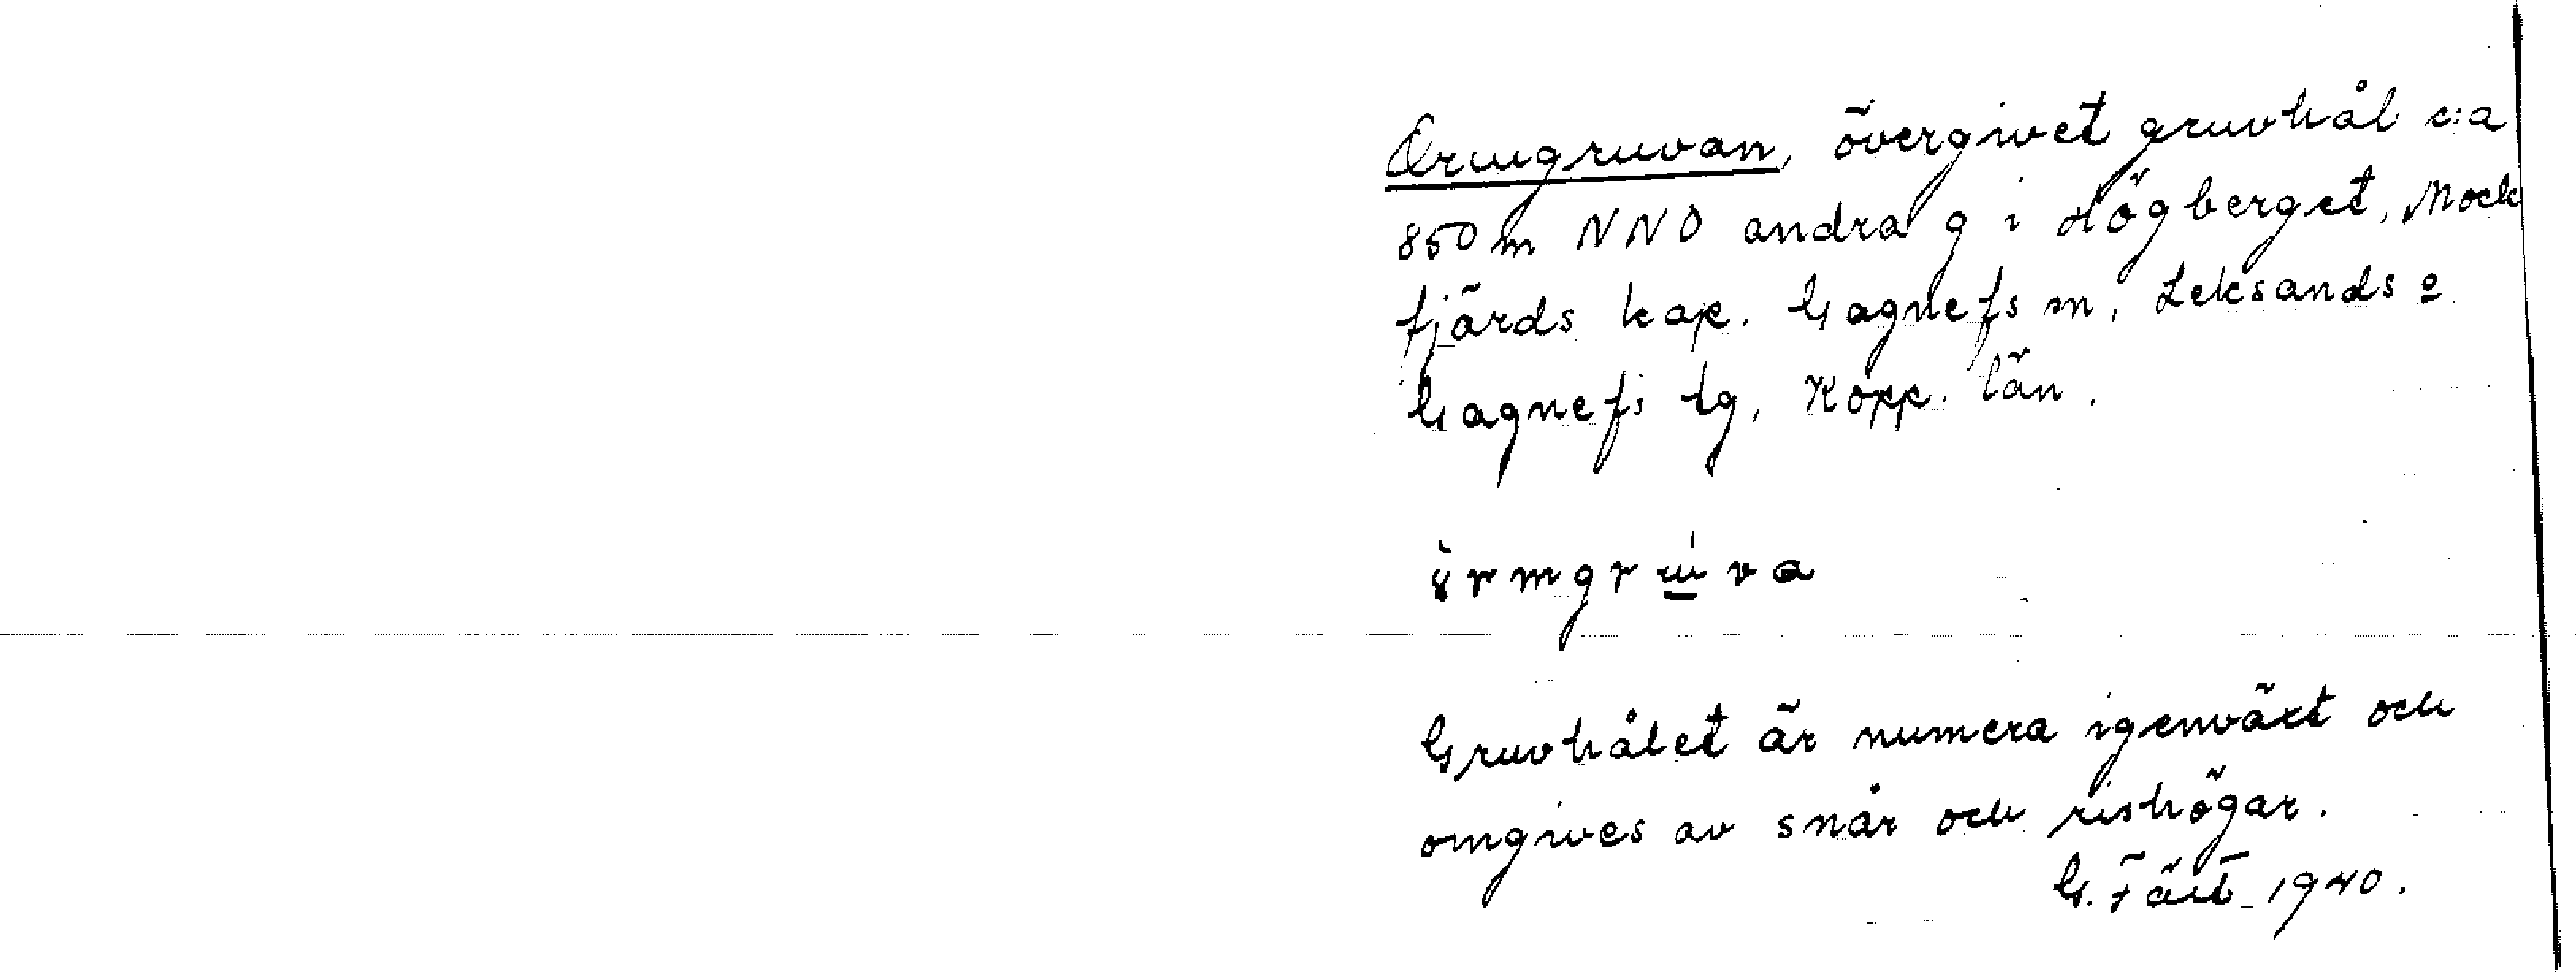 Ormgruvan, övergivet gruvhål c:a
850 m NNO andra g i Högberget, Mock
fjärds kap. Gagnefs m, Leksands o
Gagnefs tg, Kopp. län.
ormgruva
Gruvhålet är numera igenväxt och
omgives av snår och rishögar.
G. Fält 1940.